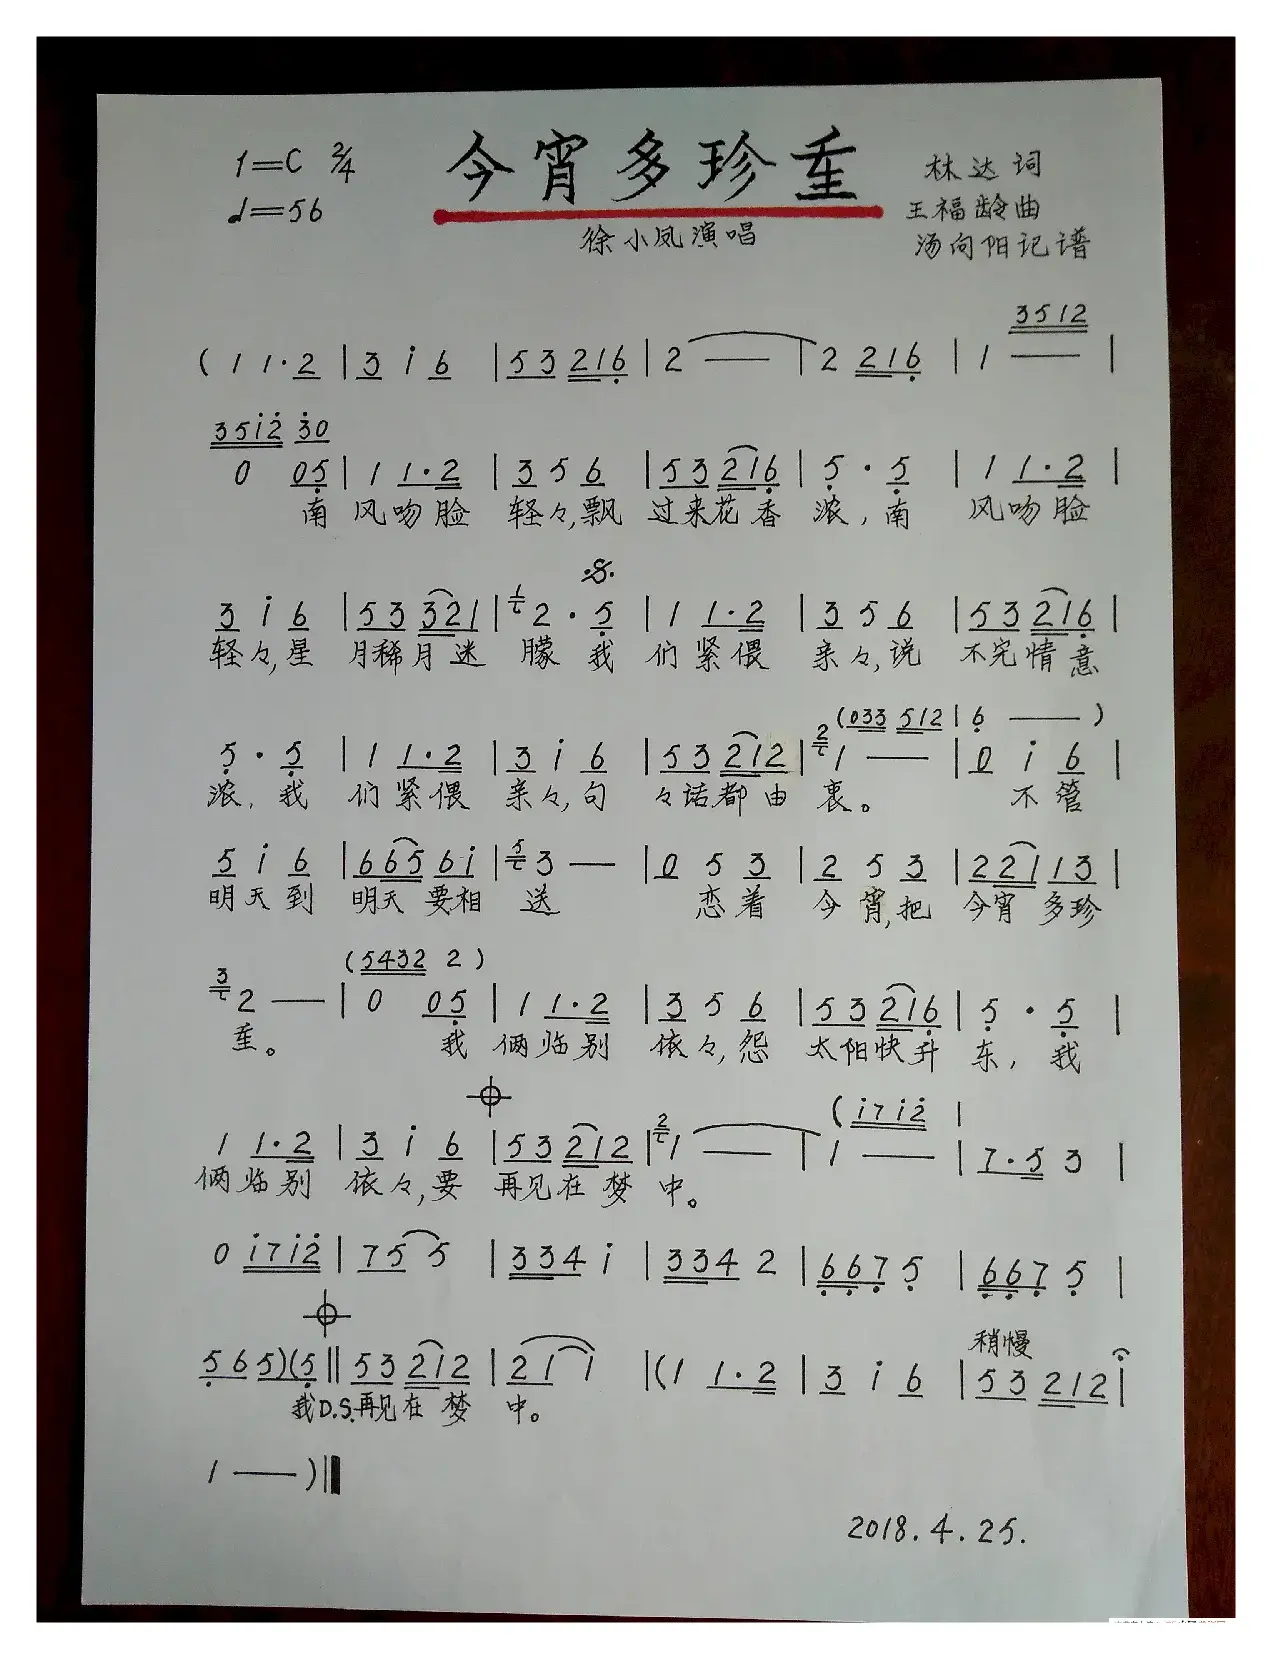 1=C 2/4
♩=56
今宵多珍重
徐小凤演唱
林达词
王福龄曲
汤向阳记谱
3512
( 1 1·2 | 3 i 6 | 53 216 | 2 — | 2 216 | 1 — |
35i2 30
0 05 | 1 1·2 | 3 5 6 | 53 216 | 5 · 5 | 1 1·2 |
南 风吻脸 轻々,飘 过来花香 浓,南 风吻脸
3 i 6 | 53 321 | 1 2 · 5 | 1 1·2 | 3 5 6 | 53 216 |
轻々,星 月稀月迷 朦 我 们紧偎 亲々,说 不完情意
(033 512 | 6 — )
5 · 5 | 1 1·2 | 3 i 6 | 53 212 | 2 1 — | 0 i 6 |
浓,我 们紧偎 亲々,句 々话都由 衷。 不管
5 i 6 | 665 6i | 5 3 — | 0 5 3 | 2 5 3 | 221 13 |
明天到 明天要相 送 恋着 今宵,把 今宵多珍
(5432 2 )
3 2 — | 0 05 | 1 1·2 | 3 5 6 | 53 216 | 5 · 5 |
重。 我 俩临别 依々,怨 太阳快升 东,我
(i7i2 |
1 1·2 | 3 i 6 | 53 212 | 2 1 — | 1 — | 7·5 3 |
俩临别 依々,要 再见在梦 中。
0 i7i2 | 75 5 | 334 i | 334 2 | 667 5 | 667 5 |
稍慢
565)(5 || 53 212 | 21 1 |(1 1·2 | 3 i 6 | 53 212 |
我D.S.再见在梦 中。
1 — )||
2018.4.25.